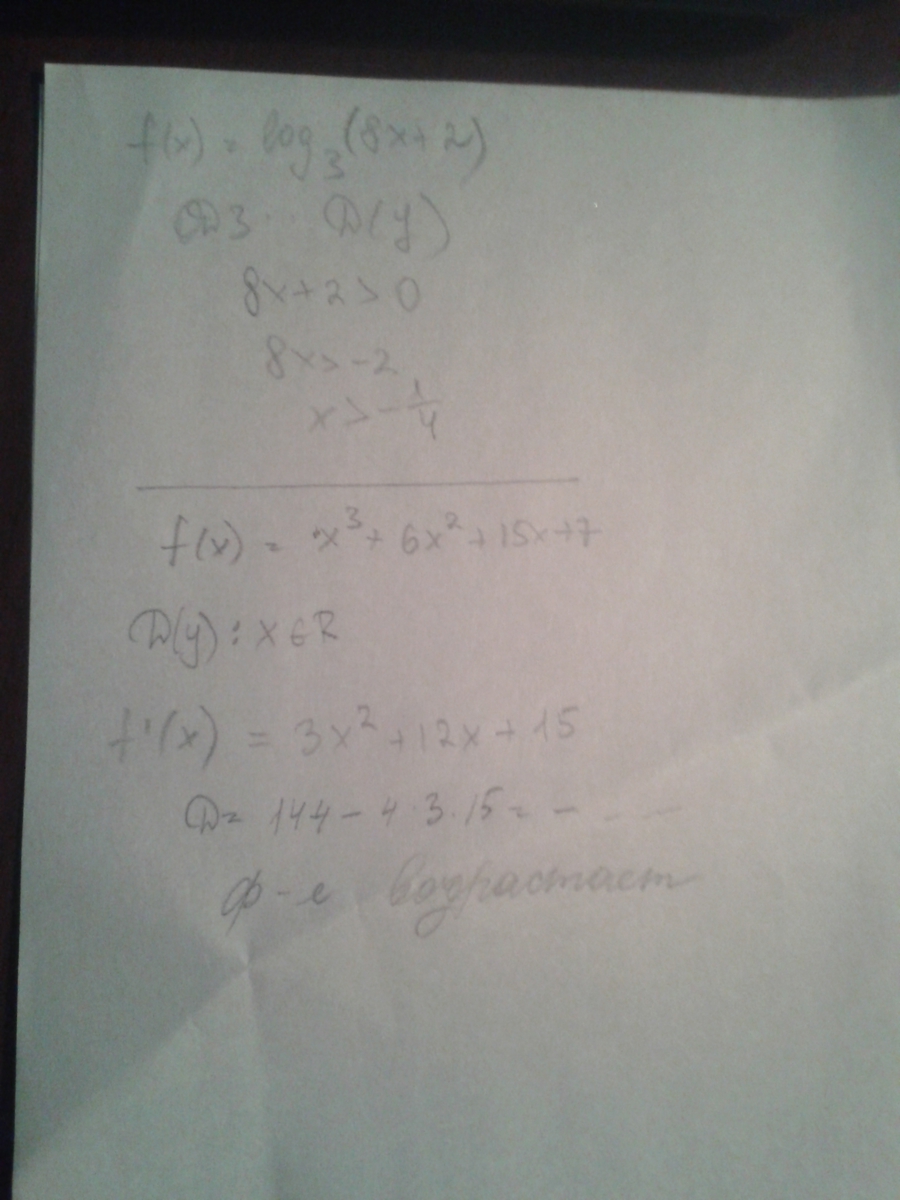 f(x) = log₃(8x+2)
ОДЗ D(y)
8x+2>0
8x>-2
x>-1/4
f(x) = x³+6x²+15x+7
D(y): x∈R
f'(x) = 3x²+12x+15
D= 144-4·3·15= - - - -
ф-я возрастает